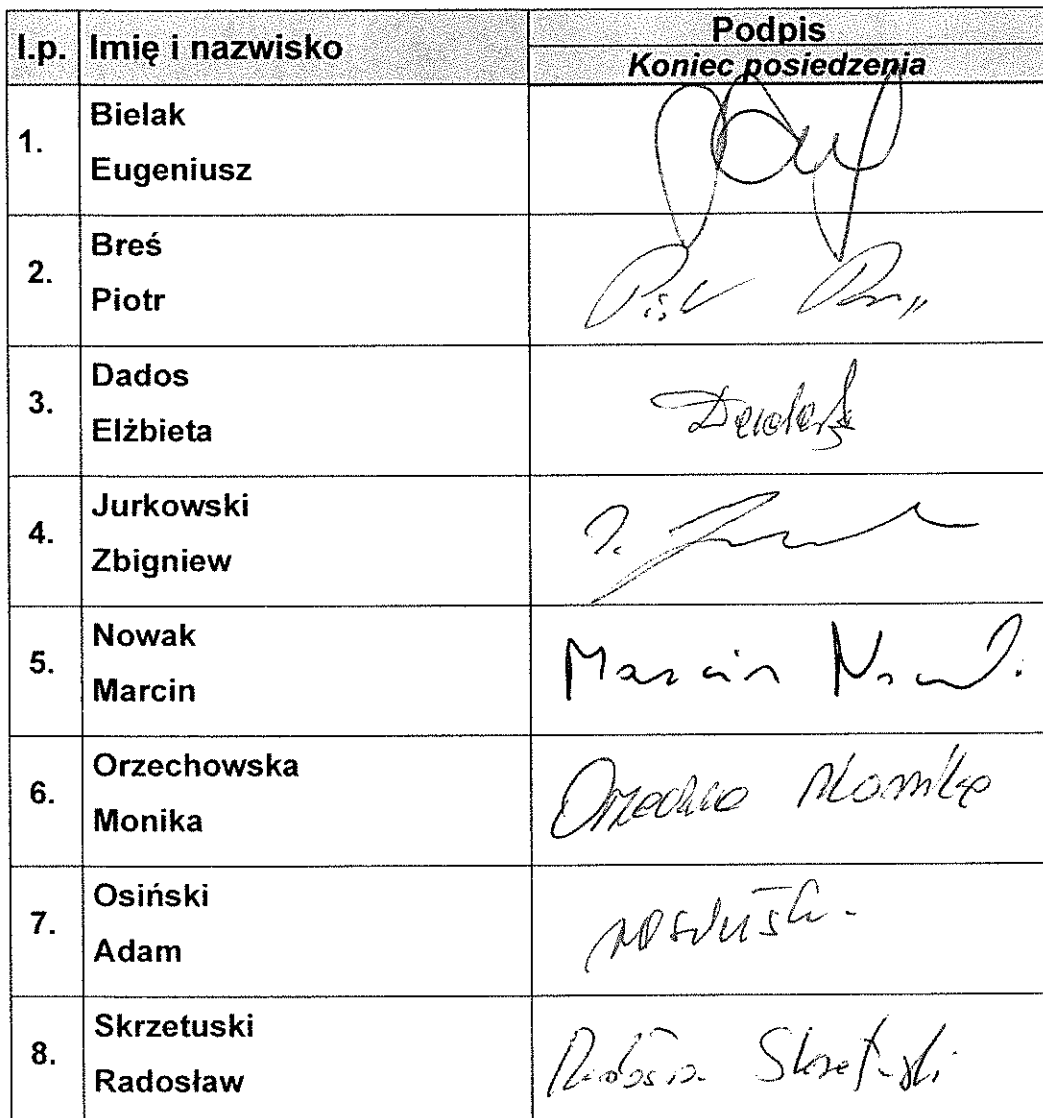 l.p. Imię i nazwisko Podpis
Koniec posiedzenia
1. Bielak
Eugeniusz
2. Breś
Piotr
3. Dados
Elżbieta
4. Jurkowski
Zbigniew
5. Nowak
Marcin
Marcin Nowak
6. Orzechowska
Monika
Monika
7. Osiński
Adam
8. Skrzetuski
Radosław
Skrzetuski